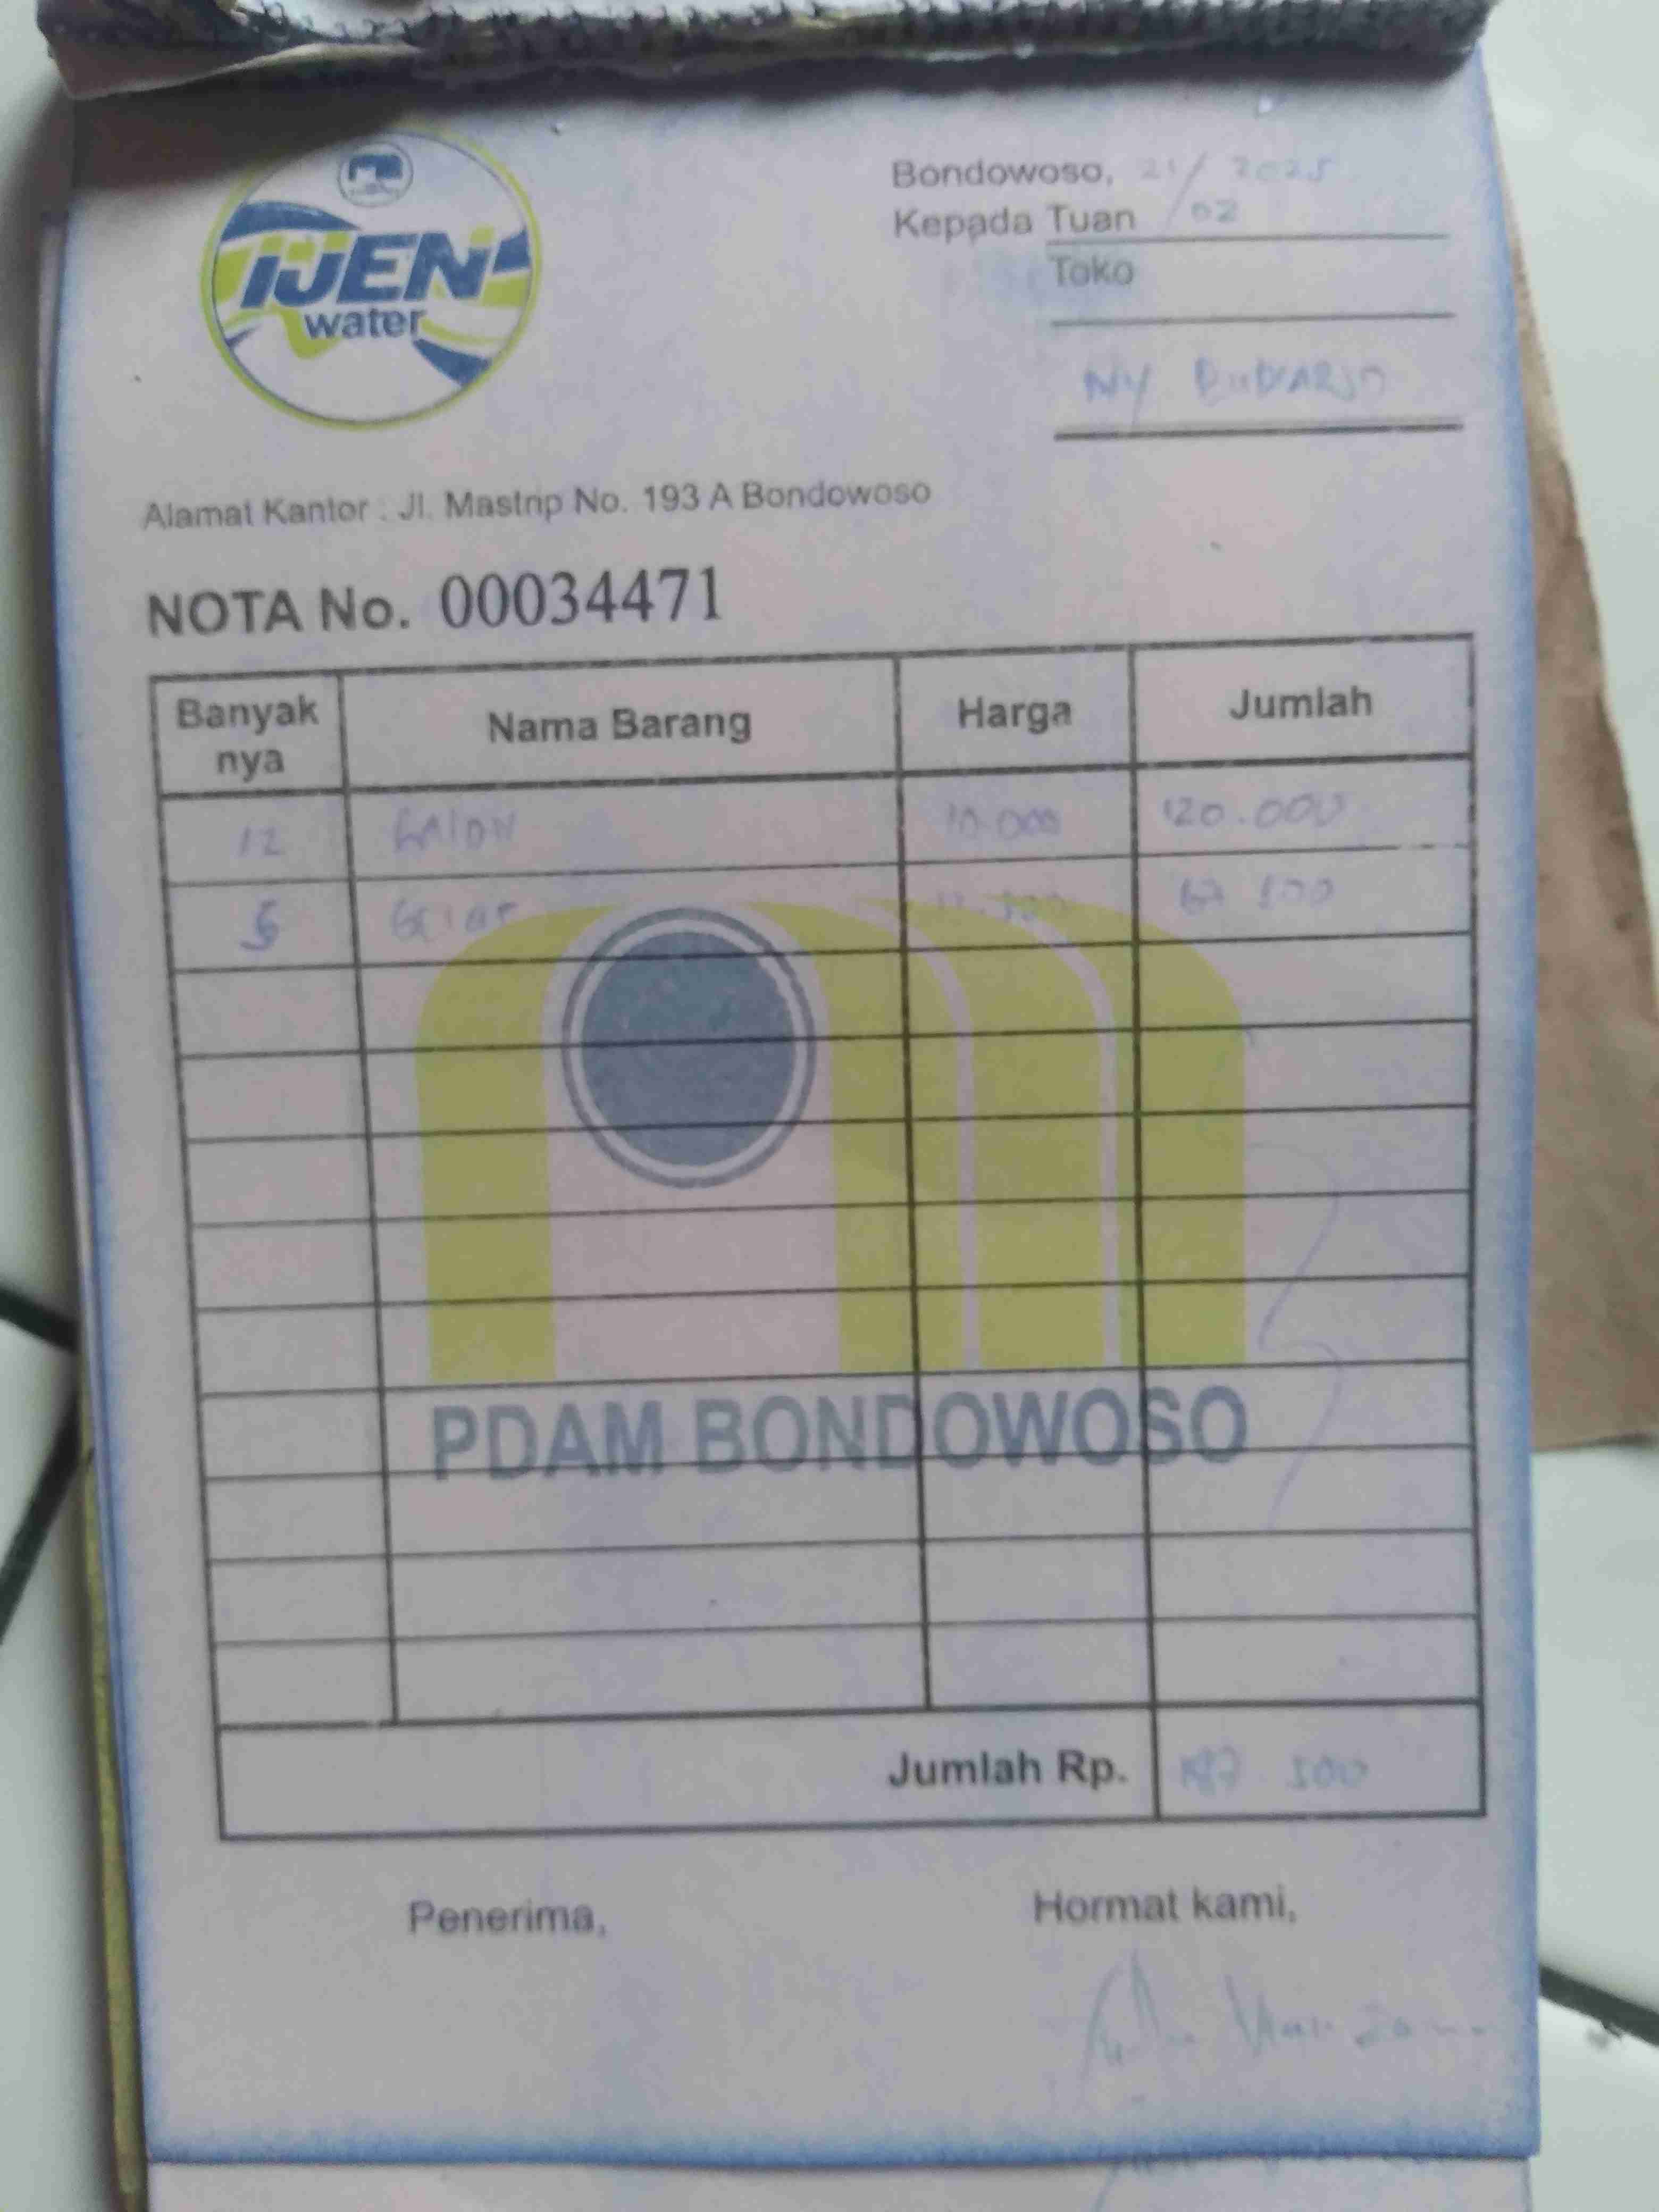 IJEN
water
Bondowoso, 21/02 2025
Kepada Tuan
Toko
NY
Alamat Kantor : Jl. Mastrip No. 193 A Bondowoso
NOTA No. 00034471
Banyak nya Nama Barang Harga Jumlah
12 GALON 10.000 120.000
5 GELAS 500
PDAM BONDOWOSO
Jumlah Rp. 187 500
Penerima, Hormat kami,